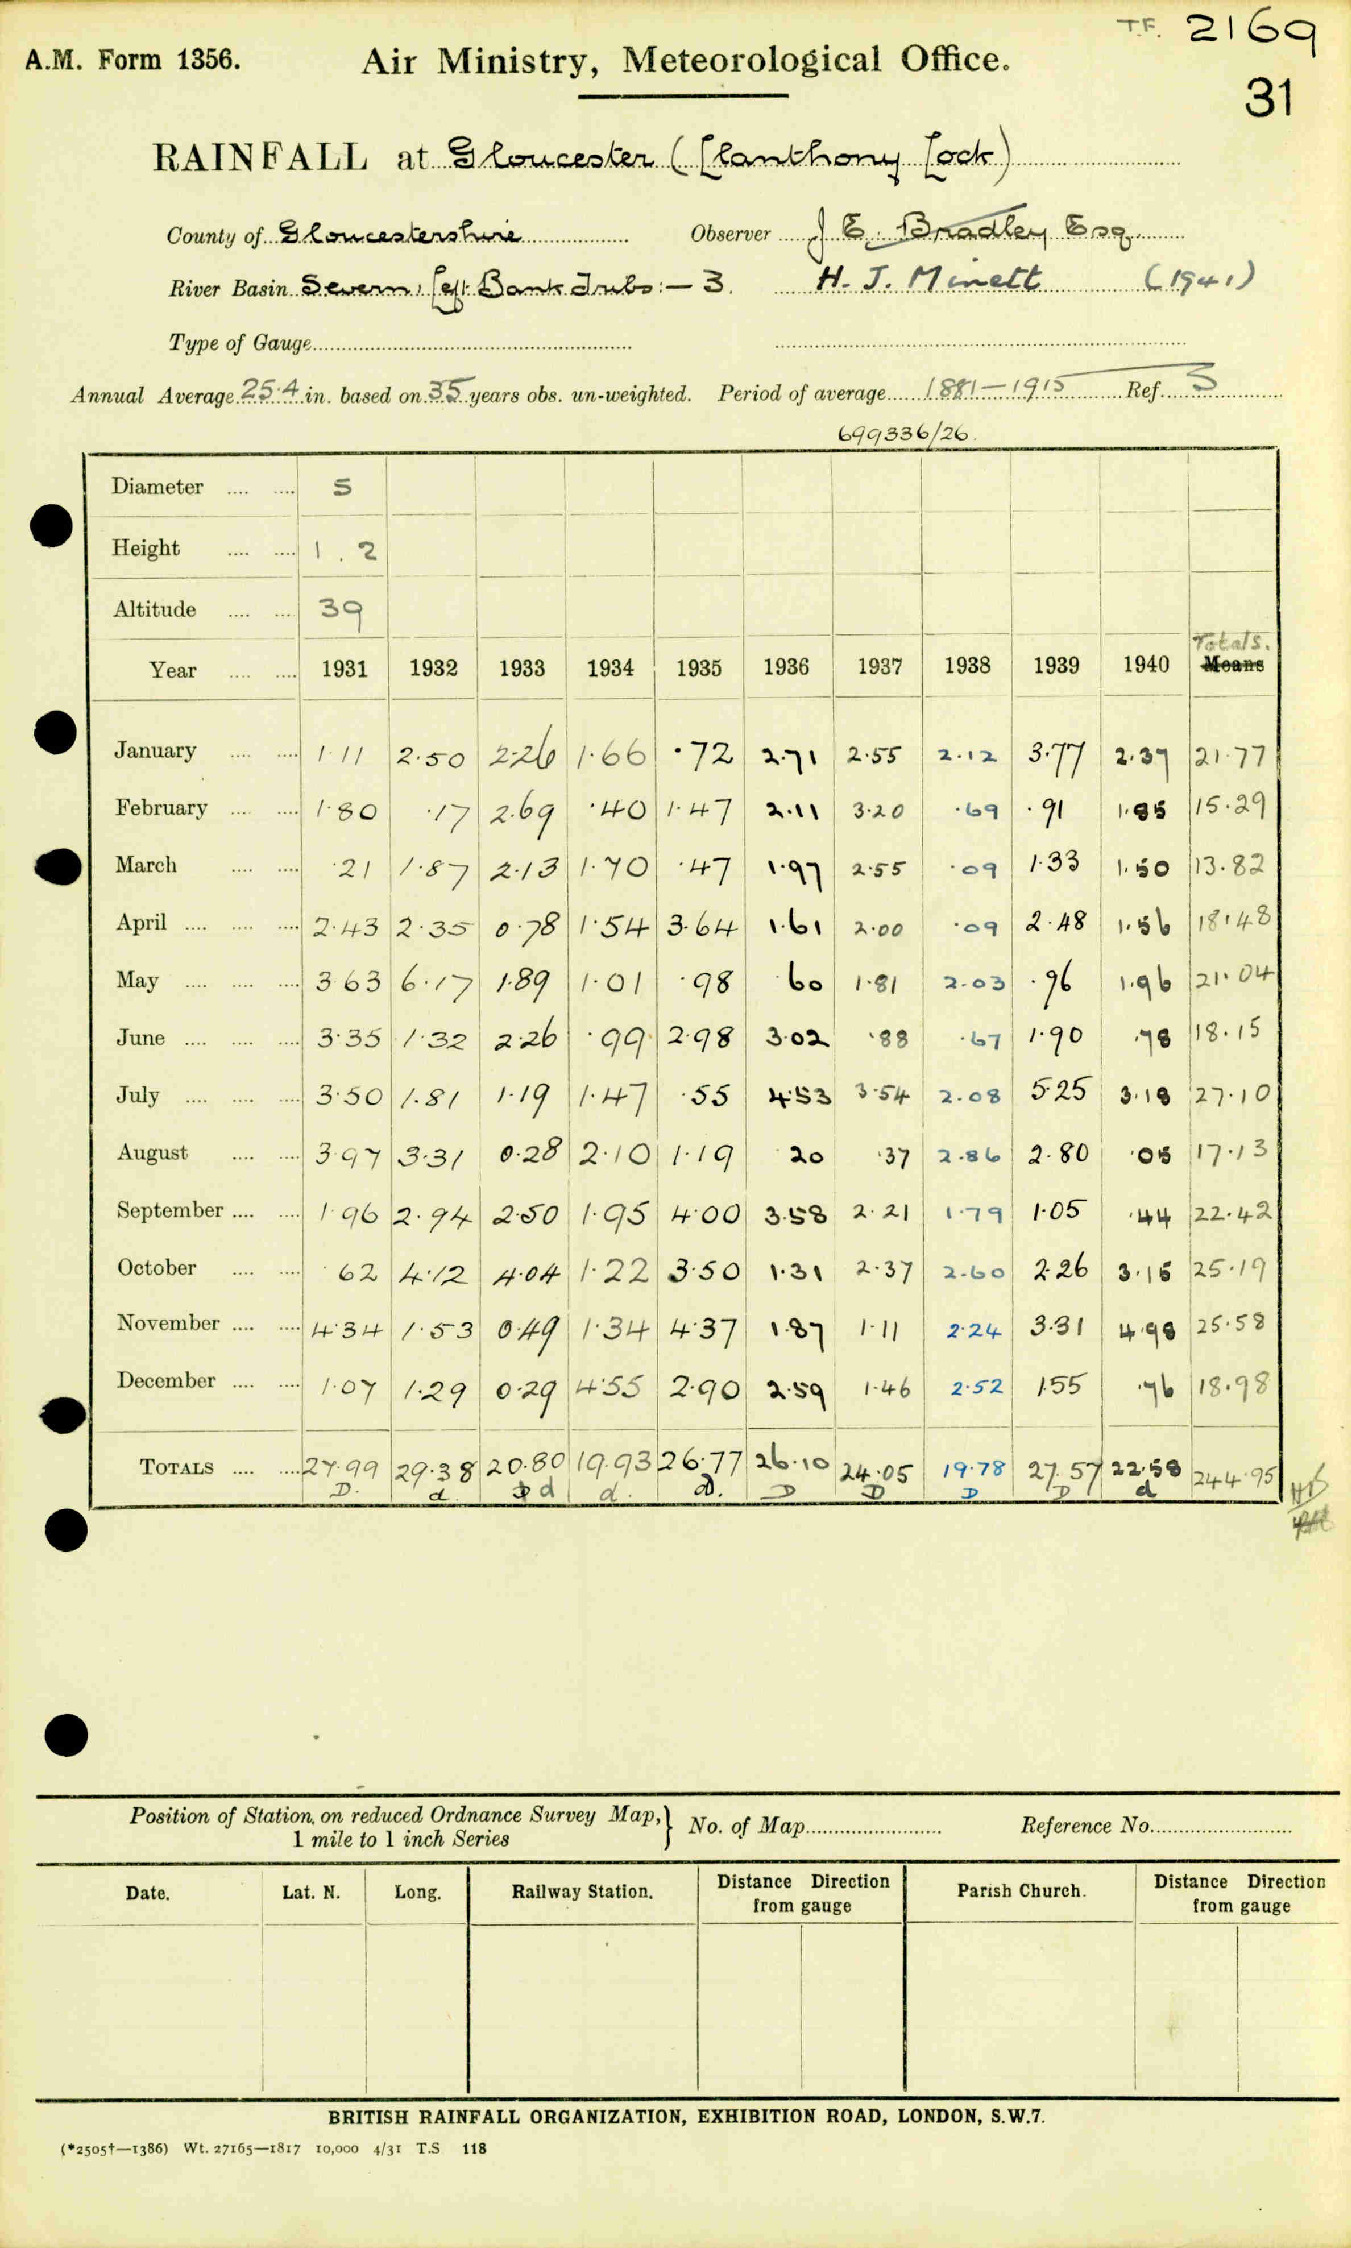 T.F. 2169
A.M. Form 1356. Air Ministry, Meteorological Office.
31
RAINFALL at Gloucester (Llanthony Lock)
County of Gloucestershire Observer J E. Bradley Esq.
River Basin Severn, Left Bank Tribs:— 3. H. J. Minett (1941)
Type of Gauge
Annual Average 25.4 in. based on 35 years obs. un-weighted. Period of average 1881—1915 Ref. 3
699336/26.
Diameter .... .... 5
Height .... .... 1 . 2
Altitude .... .... 39
Totals.
Year .... .... 1931 1932 1933 1934 1935 1936 1937 1938 1939 1940 Means
January .... .... 1.11 2.50 2.26 1.66 .72 2.71 2.55 2.12 3.77 2.37 21.77
February .... .... 1.80 .17 2.69 .40 1.47 2.11 3.20 .69 .91 1.85 15.29
March .... .... .21 1.87 2.13 1.70 .47 1.97 2.55 .09 1.33 1.50 13.82
April .... .... .... 2.43 2.35 0.78 1.54 3.64 1.61 2.00 .09 2.48 1.56 18.48
May .... .... .... 3 63 6.17 1.89 1.01 .98 60 1.81 2.03 .96 1.96 21.04
June .... .... .... 3.35 1.32 2.26 .99 2.98 3.02 .88 .67 1.90 .78 18.15
July .... .... .... 3.50 1.81 1.19 1.47 .55 4.53 3.54 2.08 5.25 3.18 27.10
August .... .... 3.97 3.31 0.28 2.10 1.19 20 .37 2.86 2.80 .05 17.13
September .... .... 1.96 2.94 2.50 1.95 4.00 3.58 2.21 1.79 1.05 .44 22.42
October .... .... 62 4.12 4.04 1.22 3.50 1.31 2.37 2.60 2.26 3.15 25.19
November .... .... 4.34 1.53 0.49 1.34 4.37 1.87 1.11 2.24 3.31 4.98 25.58
December .... .... 1.07 1.29 0.29 4.55 2.90 2.59 1.46 2.52 1.55 .76 18.98
TOTALS .... .... 27.99 29.38 20.80 19.93 26.77 26.10 24.05 19.78 27.57 22.58 244.95
D. d d d. D. D D D D d
Position of Station, on reduced Ordnance Survey Map, } No. of Map Reference No.
1 mile to 1 inch Series
Date. Lat. N. Long. Railway Station. Distance Direction from gauge Parish Church. Distance Direction from gauge
BRITISH RAINFALL ORGANIZATION, EXHIBITION ROAD, LONDON, S.W.7.
(*2505†—1386) Wt. 27165—1817 10,000 4/31 T.S 118